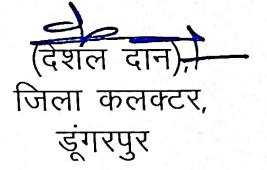 (देशल दान)
जिला कलक्टर,
डूंगरपुर